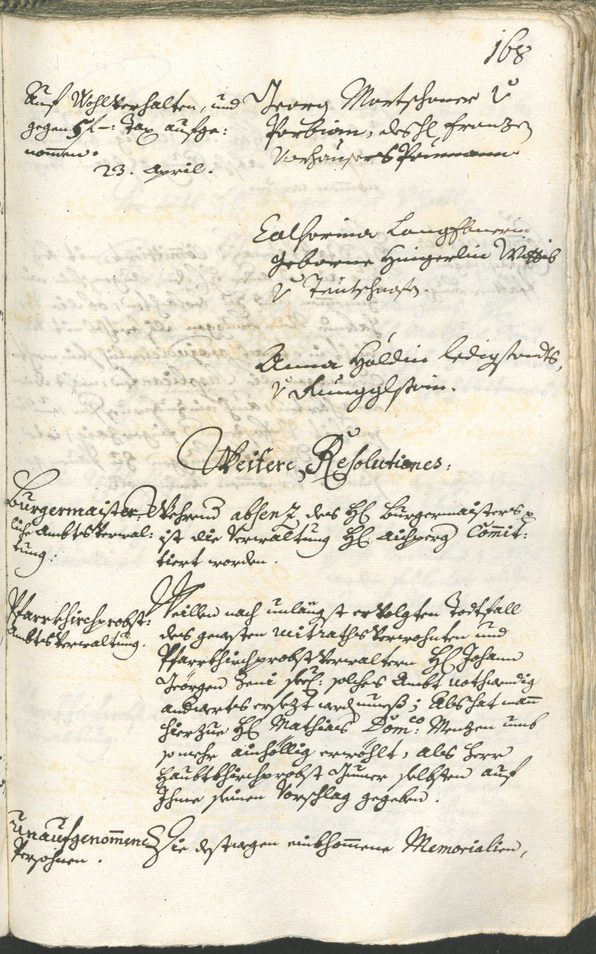 168
Auf Wohlverhalten, und
gegen 5 f –: Tax aufge:
nommen.
23. April.
Georg Martschoner v
Parbian, des H: Frantzen
Vorhausers Paumann
Catharina Langebnerin
geborne Hingerlin Wittib
v Teutschnofn.
Anna Höldin ledigstandts,
v Runggglstain.
Weitere Resolutiones:
Burgermaister
liche Ambts Verwal:
tung.
Wehrend absenz des H: Burgermaisters
ist die Verwaltung H: Aichperg Commit:
tiert worden.
Pfarrkhirchprobst:
Ambts Verwaltung.
Weillen nach unlängst ervolgten Todtfall
des gewesten mitraths Verwohnten und
Pfarrkhirchprobst Verwaltern H: Johann
Georgen Zeni seel: solches Ambt nothwendig
anderwerts ersetzt werden mueß; Als hat man
hierzue H: Mathias Dom:co Menzen umb
so mehr ainhöllig erwöhlt, als Herr
Haubtkhirchprobst selbsten auf
Ihme seinen Vorschlag gegeben.
Unaufgenommene
Persohnen.
Die destwegen einkhommene Memorialien,